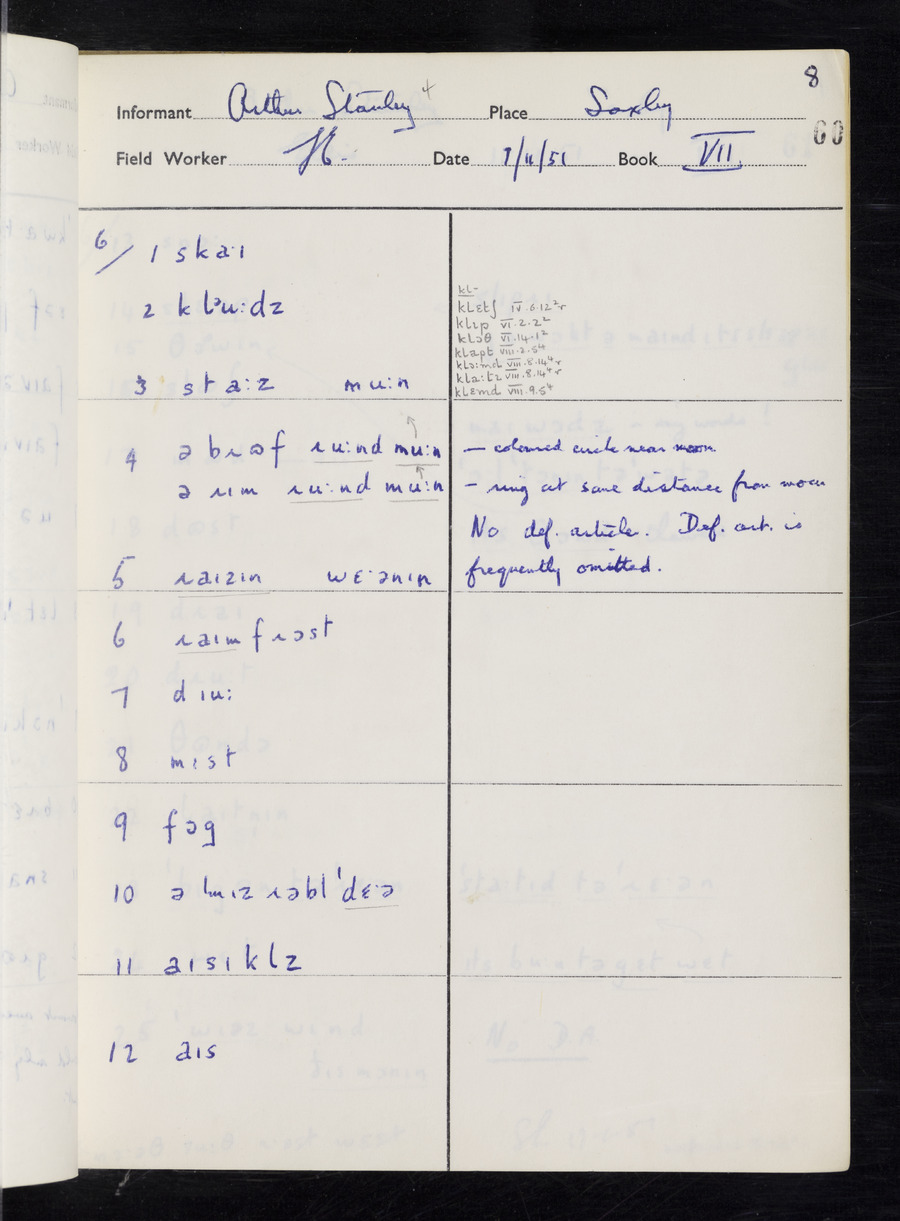 8
Informant Arthur Stanley 4 Place Saxby
60
Field Worker Date 7/11/51 Book VII
6/ 1 skaːɪ
2 kləuːdz
kl-
klɛtʃ IV.6.12²r
klɪp VI.2.2²
klɔθ VI.14.1²
klapt VIII.2.5⁴
klɔːmd VIII.8.14⁴r
klaːtz VIII.8.14⁴r
klɛmd VIII.9.5⁴
3 staːz muːn
4 ə bɹɔf ɹuːnd muːn — coloured circle near moon
ə ɹɪm ɹuːnd muːn – ring at some distance from moon
No def. article. Def. art. is
5 ɹaɪzɪn wɛːənɪn frequently omitted.
6 ɹaɪmfɹɔst
7 dɪuː
8 mɪst
9 fɔg
10 ə mɪzɹəbl ˈdɛːə
11 aɪsɪklz
12 aɪs